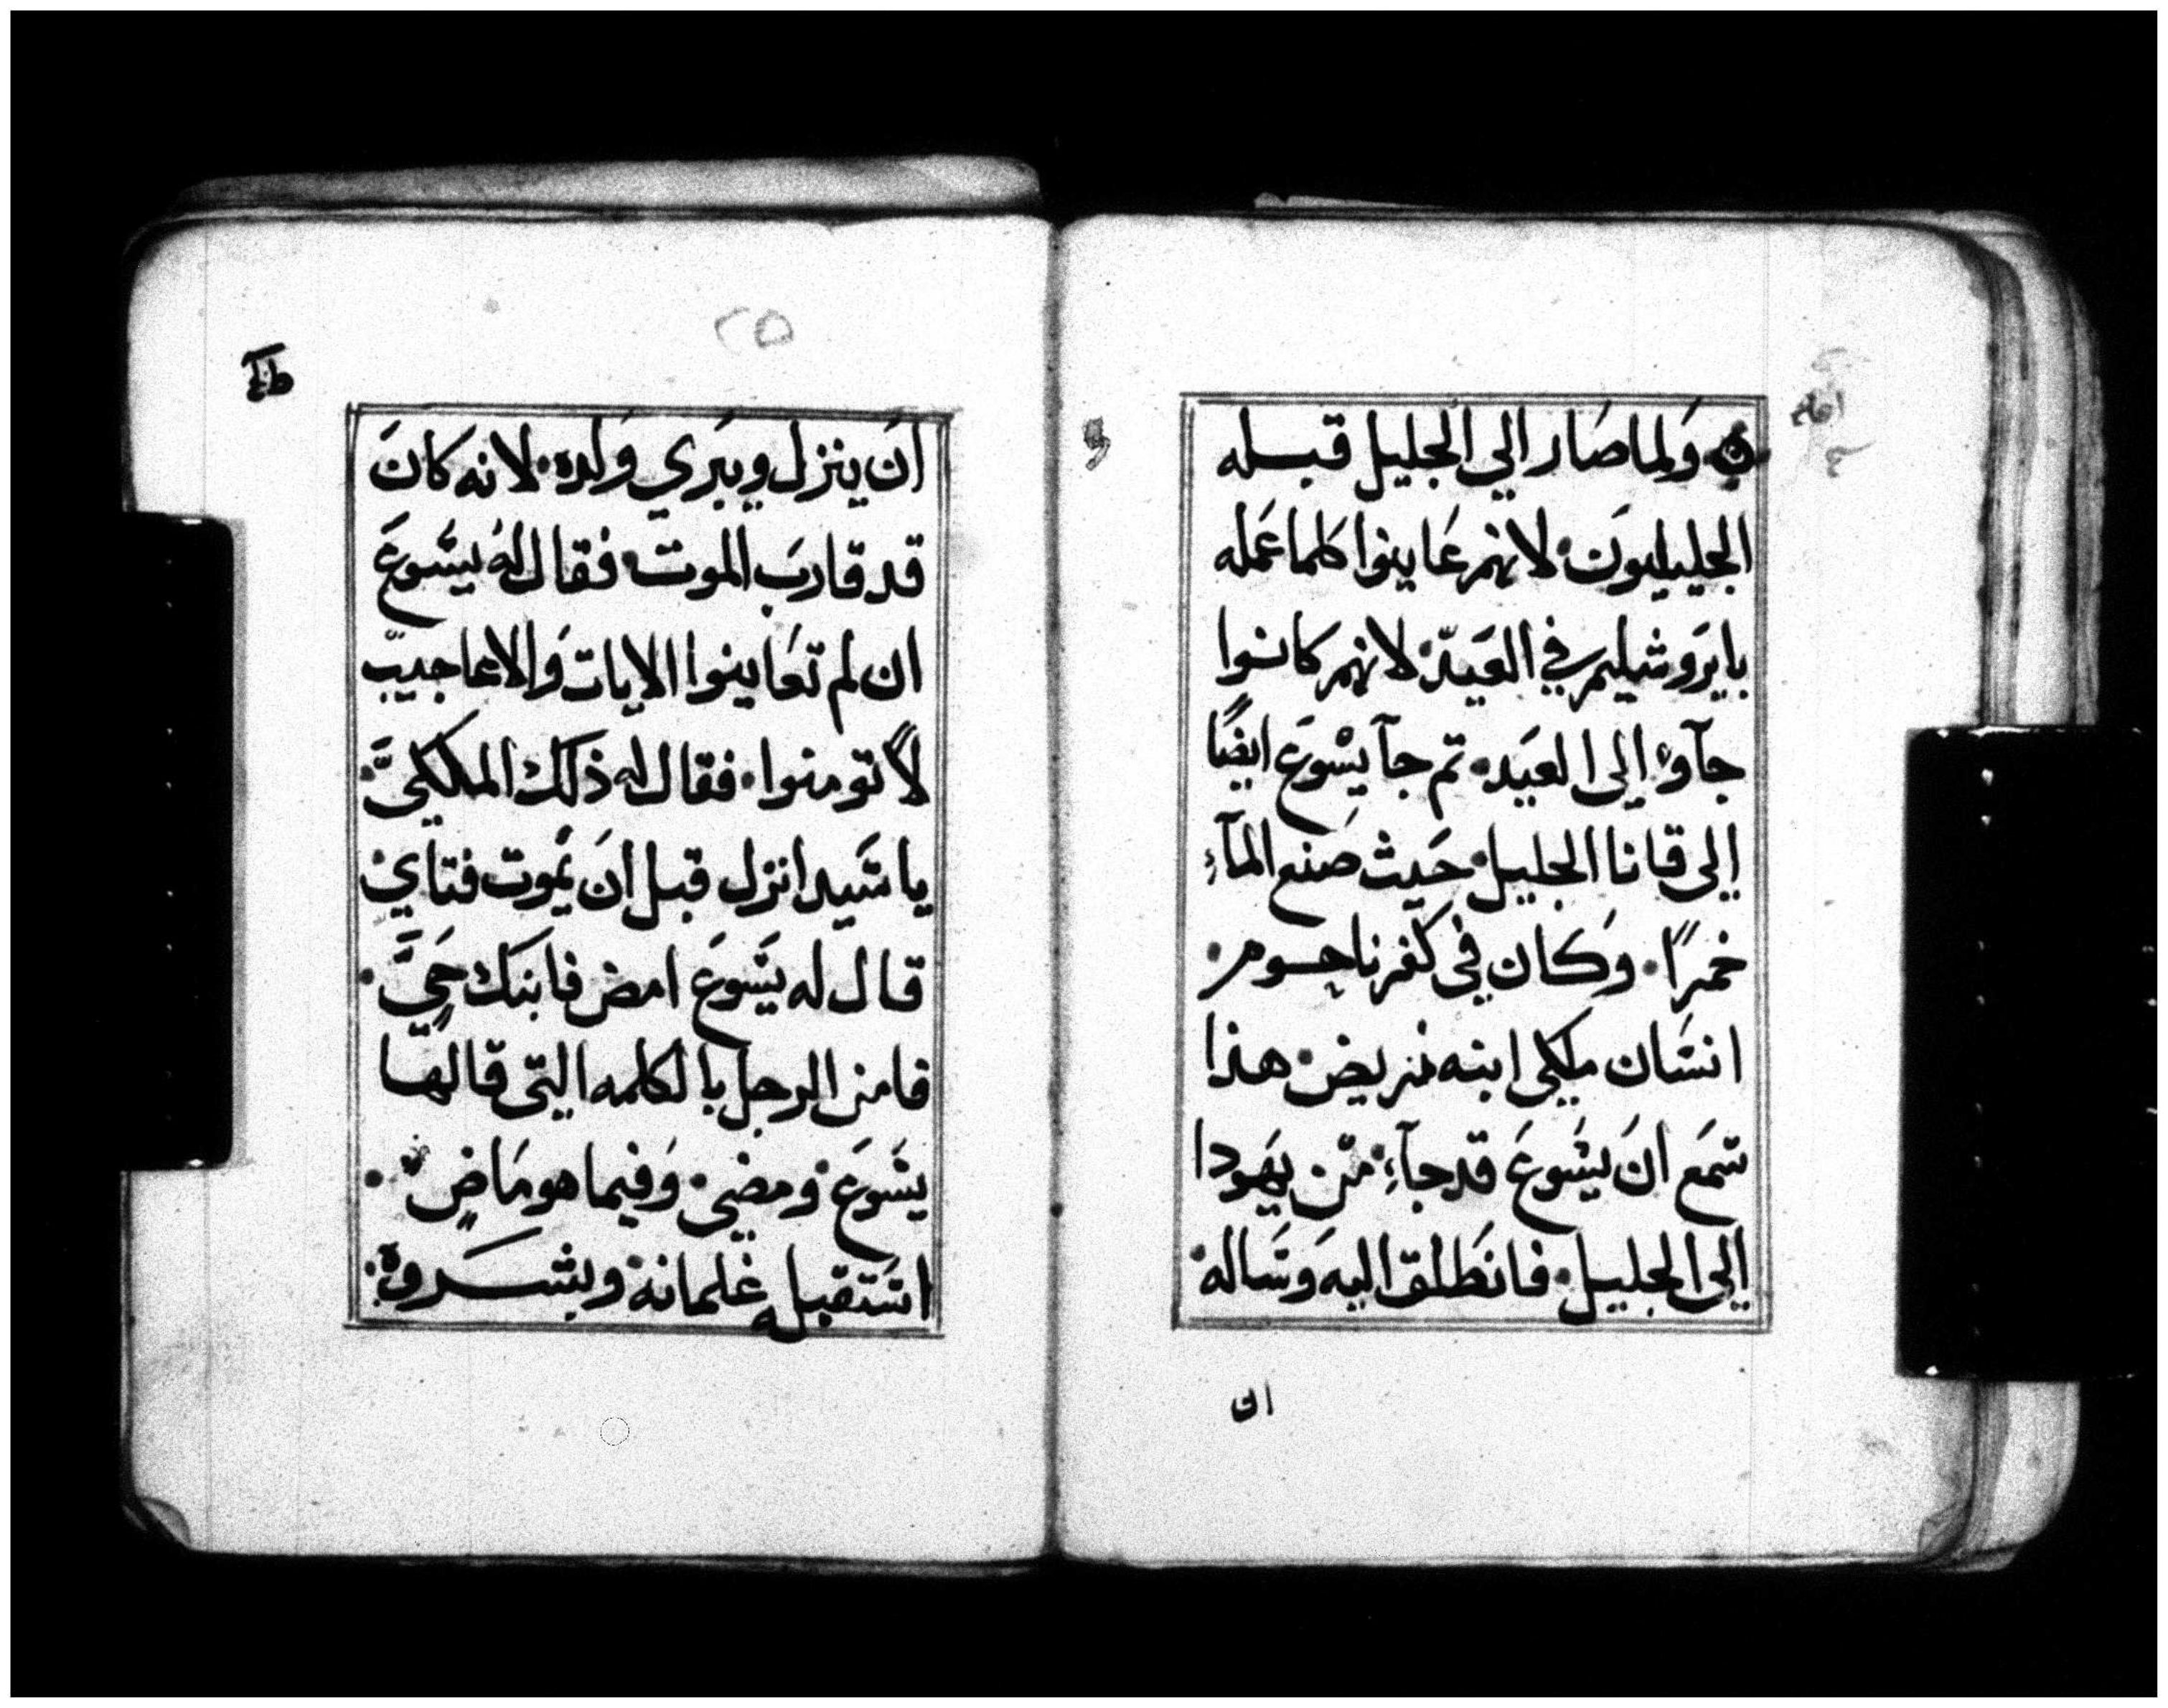 ولما صَار الي الجليل قبله
الجليليون لانهم عَاينوا كلما عَمله
بايرَوشيليم في العَيد لانهم كانوا
جآوا الي العيَد تم جآ يسْوعَ ايضًا
إلي قانا الجليل حَيث صَنع المآء
خمرًا وَكان في كفرناحوم
انسَان ملكي ابنه مريض هذا
سَمعَ انَ يسَوعَ قد جآءِ منْ يهَودا
إلي الجليل فانطَلق اليهَ وسَاله
ان
٢٥
انَ ينزل ويبَري وَلده لانه كانَ
قد قاربَ الموت فقال لهُ يسَوعَ
ان لم تعَاينوا الايات وَالاعاجيب
لاً تومنوا فقال له ذلك الملكيَّ
يا سَيد انزل قبل انَ يَموت فتاي
قال له يسَوعَ امض فابنك حَيٍَّ
فامن الرجل بالكلمه التي قالها
يسَوعَ ومضي وَفيما هو مَاضٍ
استَقبله غلمانه وبشروه